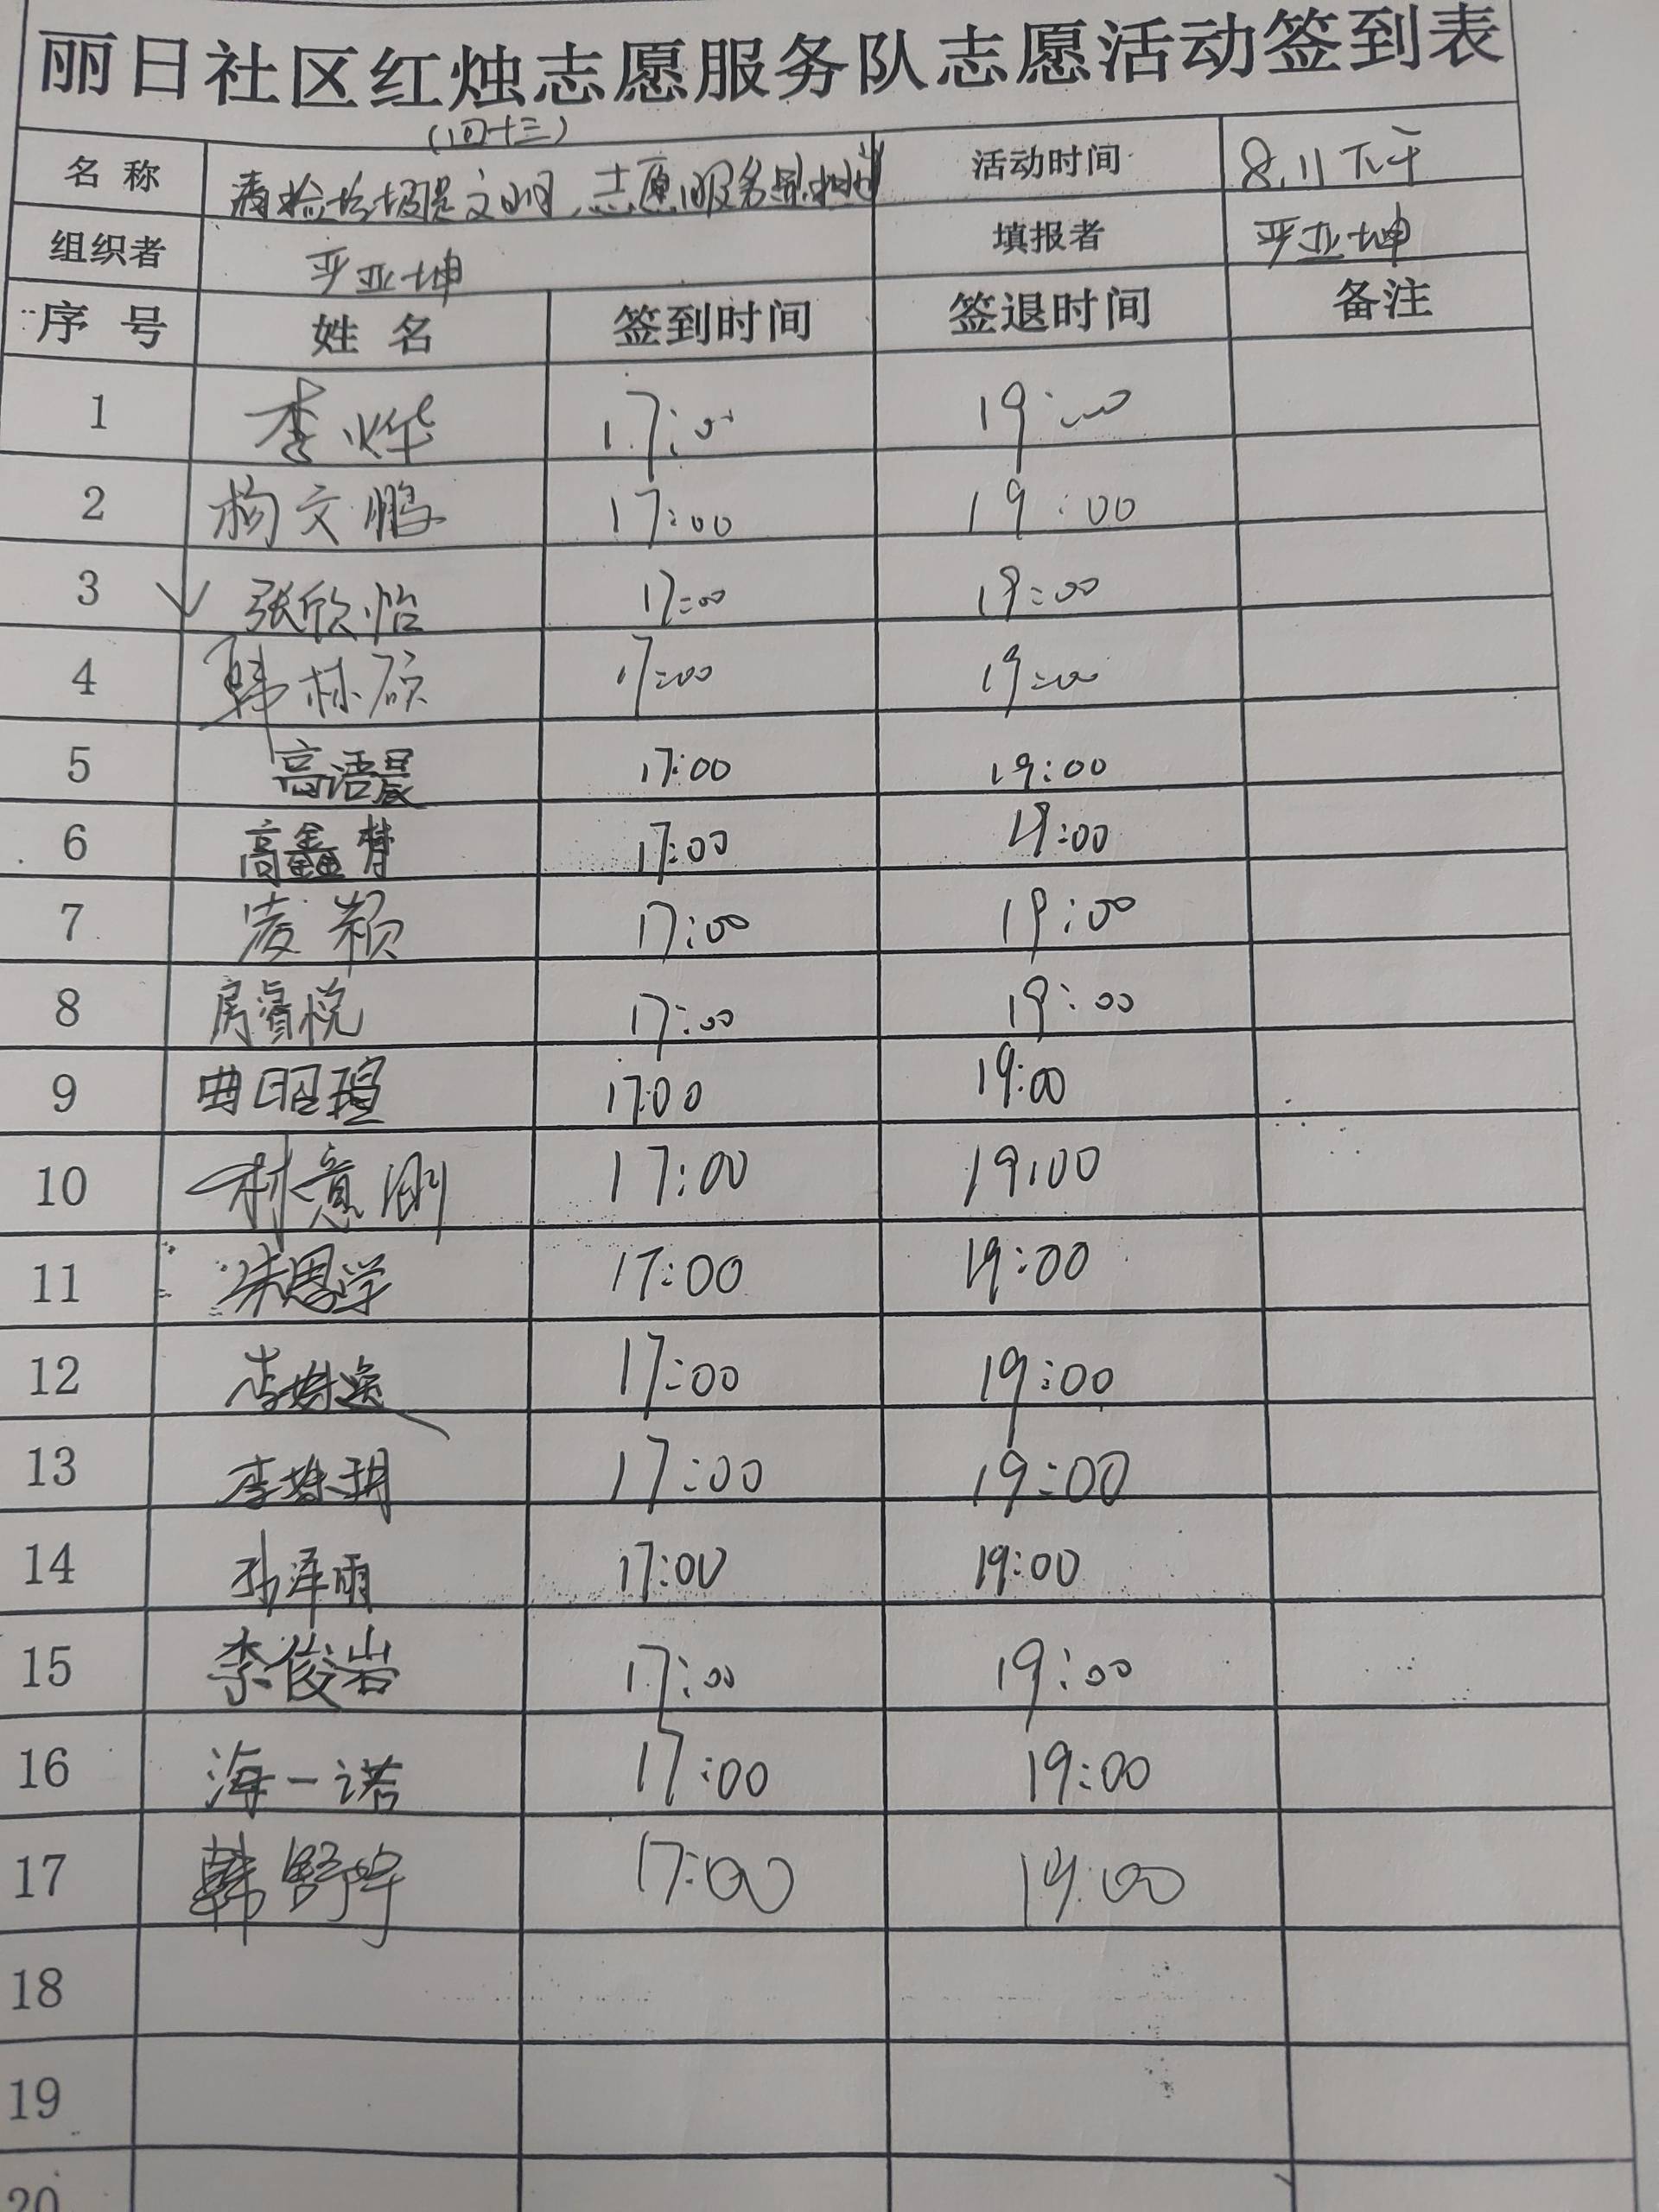 丽日社区红烛志愿服务队志愿活动签到表
(四十三)
名称 清捡垃圾提文明,志愿服务 活动时间 8.11下午
组织者 严亚坤 填报者 严亚坤
序号 姓名 签到时间 签退时间 备注
1 李烨 17:00 19:00
2 杨文鹏 17:00 19:00
3 ✓ 张欣怡 17:00 19:00
4 韩林硕 17:00 19:00
5 高浯晨 17:00 19:00
6 高鑫梦 17:00 19:00
7 凌颖 17:00 19:00
8 房睿悦 17:00 19:00
9 曲昭瑄 17:00 19:00
10 林意刚 17:00 19:00
11 朱恩学 17:00 19:00
12 李姝逸 17:00 19:00
13 李姝玥 17:00 19:00
14 孙泽雨 17:00 19:00
15 李俊岩 17:00 19:00
16 海一诺 17:00 19:00
17 韩野 17:00 19:00
18
19
20